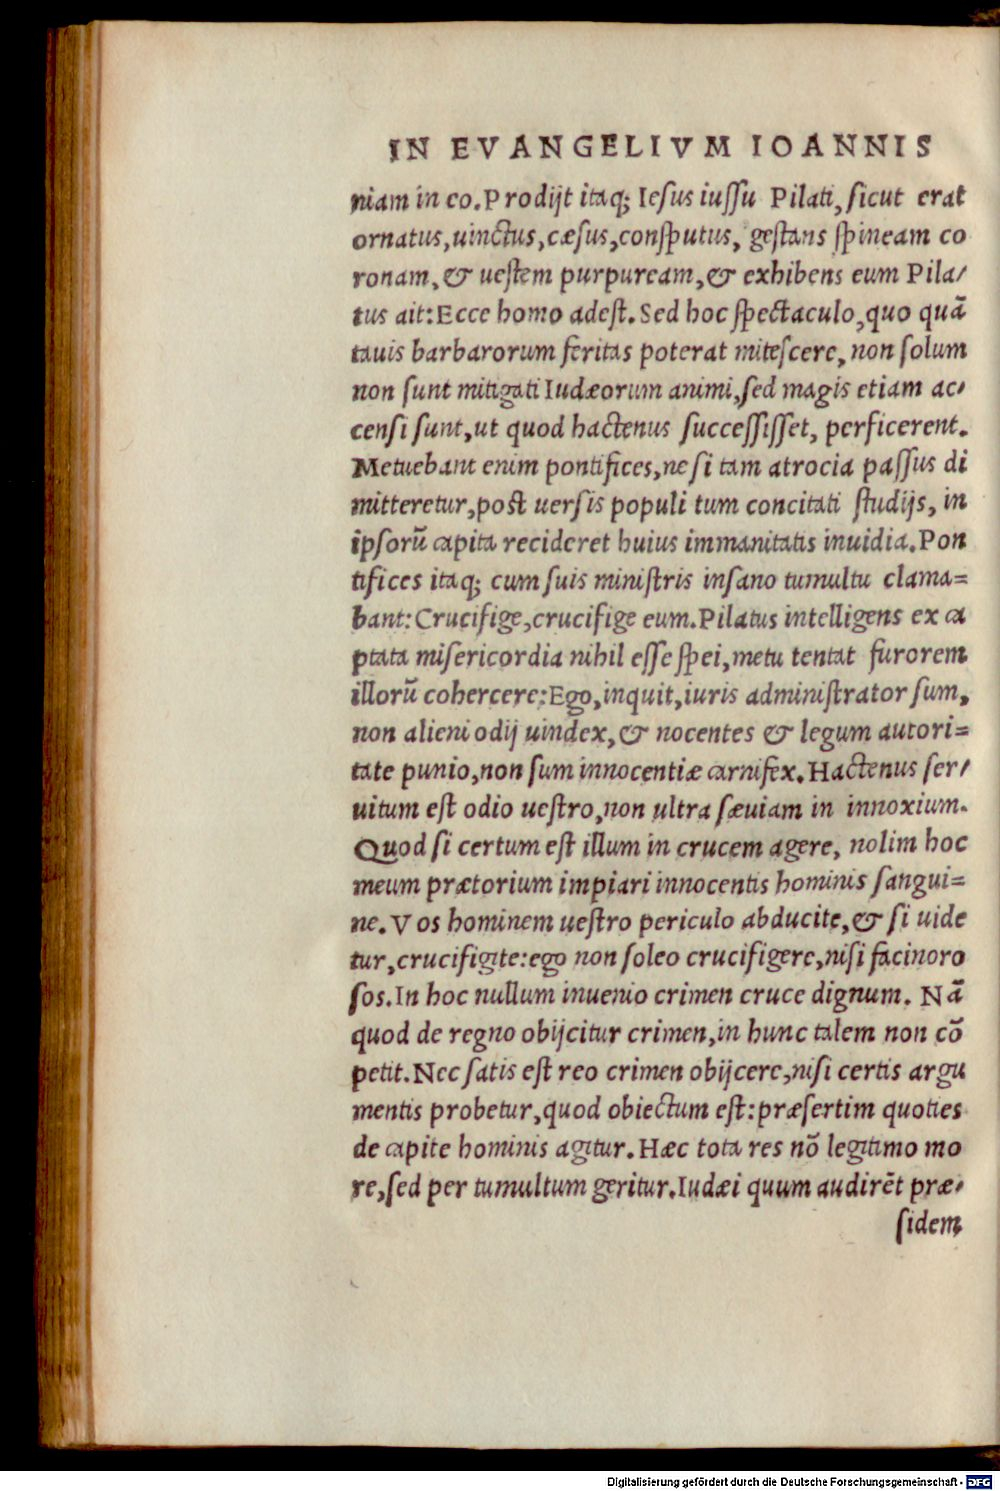 IN EVANGELIVM IOANNIS
niam in eo. Prodijt itaq; Iesus iussu Pilati, sicut erat
ornatus, uinctus, cæsus, consputus, gestans spineam co
ronam, & uestem purpuream, & exhibens eum Pila/
tus ait: Ecce homo adest. Sed hoc spectaculo, quo quã
tauis barbarorum feritas poterat mitescere, non solum
non sunt mitigati Iudæorum animi, sed magis etiam ac/
censi sunt, ut quod hactenus successisset, perficerent.
Metuebant enim pontifices, ne si tam atrocia passus di
mitteretur, post uersis populi tum concitati studijs, in
ipsorũ capita recideret huius immanitatis inuidia. Pon
tifices itaq; cum suis ministris insano tumultu clama=
bant: Crucifige, crucifige eum. Pilatus intelligens ex ca
ptata misericordia nihil esse spei, metu tentat furorem
illorũ cohercere: Ego, inquit, iuris administrator sum,
non alieni odij uindex, & nocentes & legum autori=
tate punio, non sum innocentiæ carnifex. Hactenus ser/
uitum est odio uestro, non ultra sæuiam in innoxium.
Quod si certum est illum in crucem agere, nolim hoc
meum prætorium impiari innocentis hominis sangui=
ne. Vos hominem uestro periculo abducite, & si uide
tur, crucifigite: ego non soleo crucifigere, nisi facinoro
sos. In hoc nullum inuenio crimen cruce dignum. Nã
quod de regno obijcitur crimen, in hunc talem non cõ
petit. Nec satis est reo crimen obijcere, nisi certis argu
mentis probetur, quod obiectum est: præsertim quoties
de capite hominis agitur. Hæc tota res nõ legitimo mo
re, sed per tumultum geritur. Iudæi quum audirẽt præ/
sidem
Digitalisierung gefördert durch die Deutsche Forschungsgemeinschaft - DFG